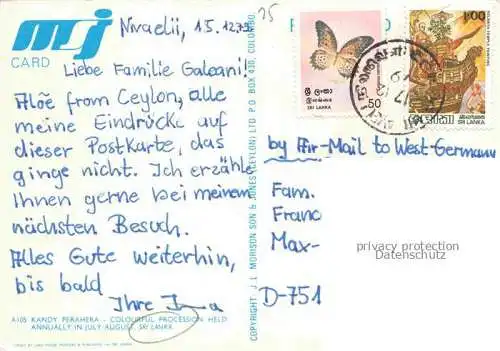 MSJ
CARD
15.12.79
Liebe Familie
Alõe from Ceylon, alle
meine Eindrücke auf
dieser Postkarte, das
ginge nicht. Ich erzähle
Ihnen gerne bei meinem
nächsten Besuch.
Alles Gute weiterhin,
bis bald
Ihre
A105 KANDY PERAHERA - COLOURFUL PROCESSION HELD
ANNUALLY IN JULY-AUGUST, SRI LANKA
COPYRIGHT: J. L. MORISON SON & JONES (CEYLON) LTD PO BOX 430, COLOMBO.
25
50
SRI LANKA
1.00
SRI LANKA
by Air-Mail to West-Germany
Fam.
Franc
Max-
privacy protection
Datenschutz
D-751